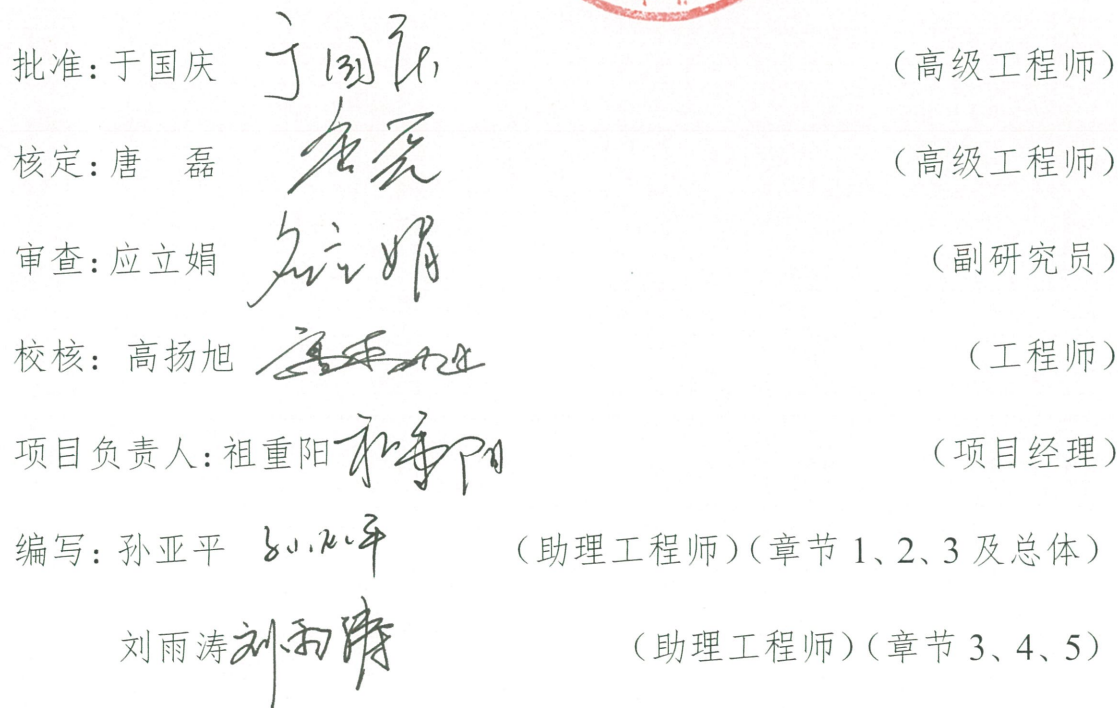 批准：于国庆 于国庆 （高级工程师）
核定：唐　磊 唐磊 （高级工程师）
审查：应立娟 应立娟 （副研究员）
校核：高扬旭 高扬旭 （工程师）
项目负责人：祖重阳 祖重阳 （项目经理）
编写：孙亚平 孙亚平 （助理工程师）（章节 1、2、3 及总体）
刘雨涛 刘雨涛 （助理工程师）（章节 3、4、5）